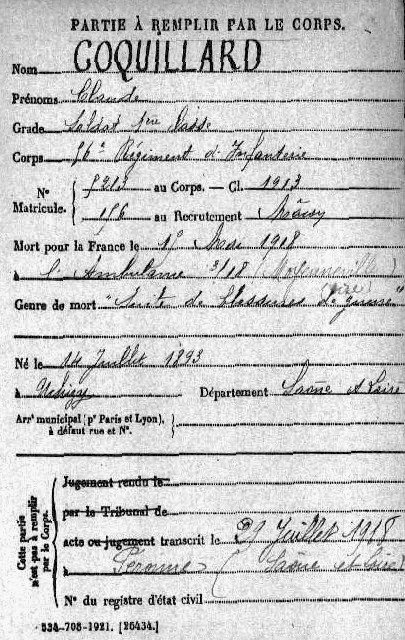 PARTIE À REMPLIR PAR LE CORPS.
Nom COQUILLARD
Prénoms Claude
Grade Soldat 1ère Classe
Corps 56e Régiment d'Infanterie
N° Matricule. { 5213 au Corps. — Cl. 1913
156 au Recrutement Mâcon
Mort pour la France le 1er Mai 1918
à l'Ambulance 3/18 (
(Oise)
Genre de mort "Suite de blessures de guerre"
Né le 14 Juillet 1893
à Uchizy Département Saône et Loire
Arrt municipal (pr Paris et Lyon), à défaut rue et N°.
Cette partie n'est pas à remplir par le Corps.
Jugement rendu le
par le Tribunal de
acte ou jugement transcrit le 21 Juillet 1918
à Péronne (Saône et Loire)
N° du registre d'état civil
534-708-1921. [26434.]